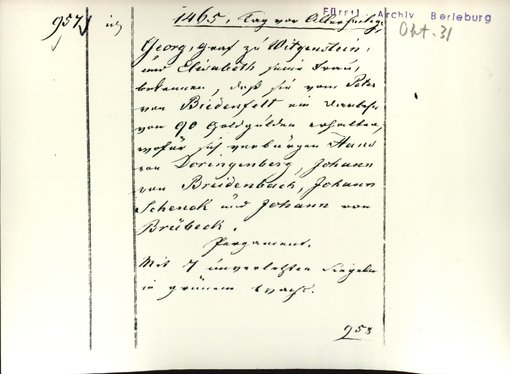 957
1465, Tag vor Allerheilige
Fürstl Archiv Berleburg
Okt. 31
Georg, Graf zu Witgenstein,
und Elisabeth seine Frau,
bekennen, daß sie vom Peter
von Biedenfelt ein Darlehn
von 90 Goldgulden erhalten,
wofür sich verbürgen Hans
von Doringenberg, Johann
von Breidenbach, Johann
Schenck und Johann von
Brübeck.
Pergament.
Mit 7 unverletzten Siegeln
in grünem Wachs.
958